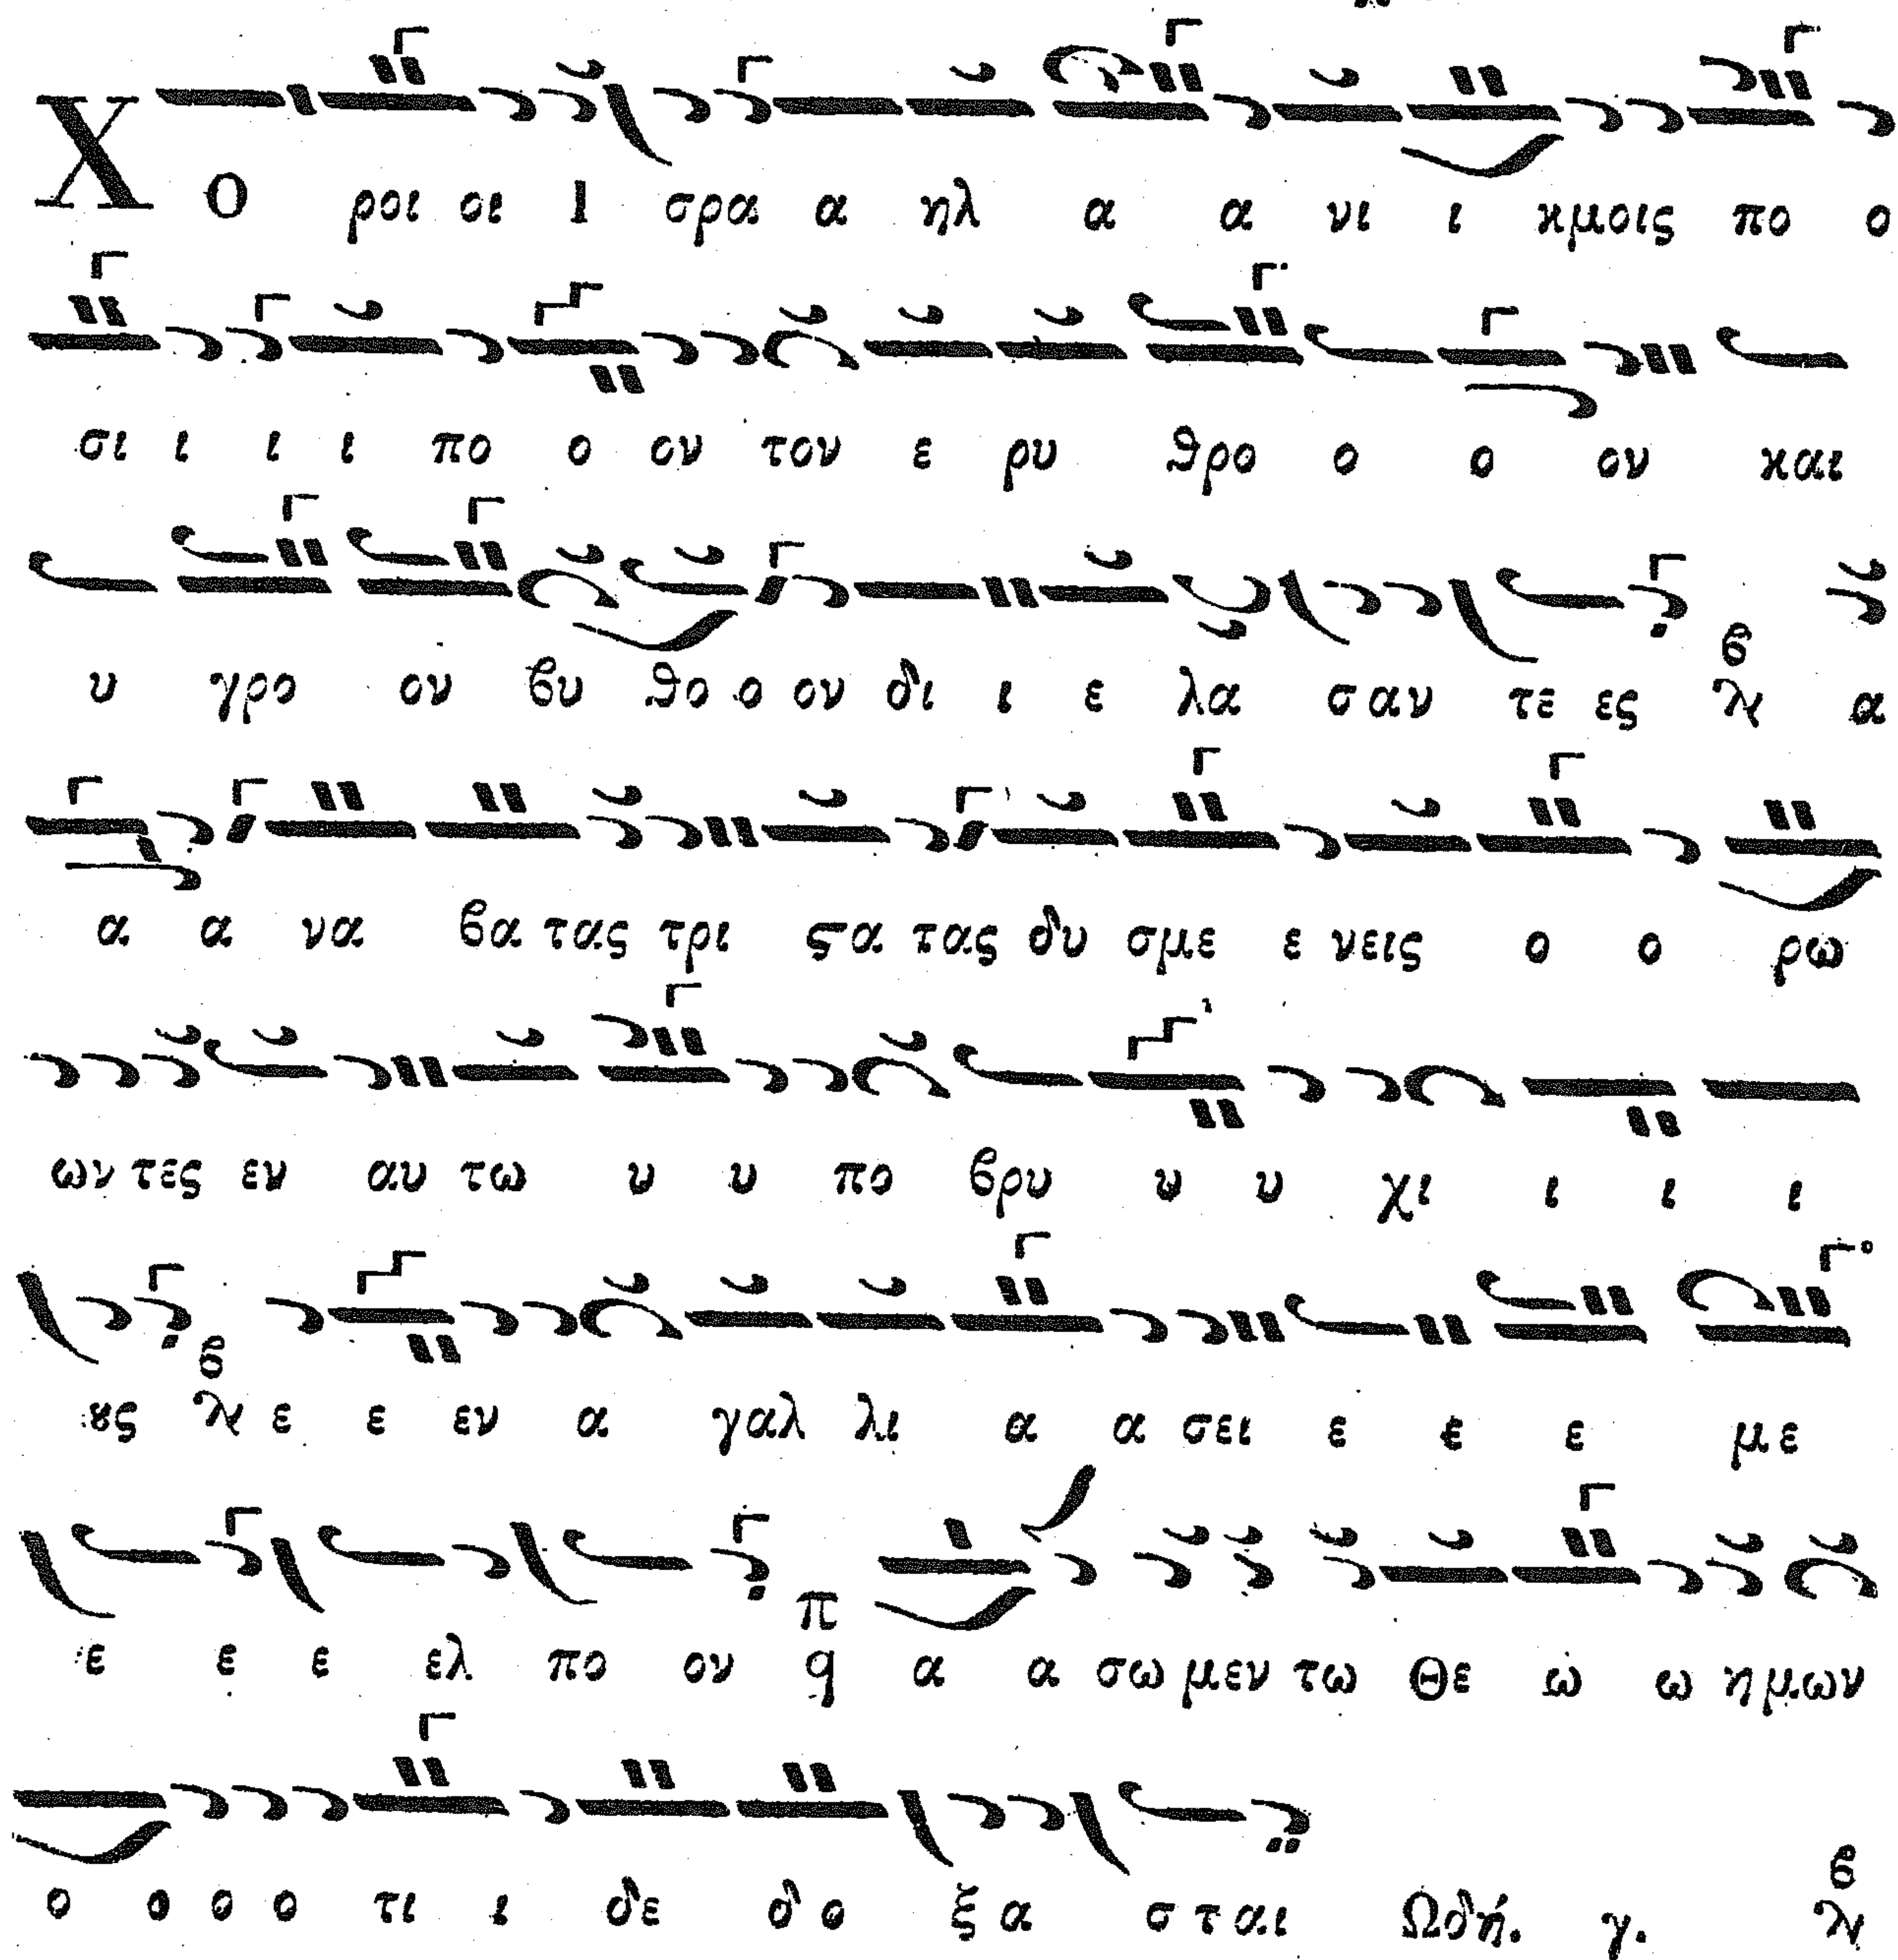 Χ ο ροι οι Ι σρα α ηλ α α νι ι κμοις πο ο
σι ι ι ι πο ο ον τον ε ρυ θρο ο ο ον και
υ γρο ον βυ θο ο ον δι ι ε λα σαν τε ες β λ α
α α να βα τας τρι ϛα τας δυ σμε ε νεις ο ο ρω
ων τες εν αυ τω υ υ πο βρυ υ υ χι ι ι ι
ȣς β λ ε ε εν α γαλ λι α α σει ε ε ε με
ε ε ε ελ πο ον π q α α σω μεν τω Θε ω ω ημων
ο ο ο ο τι ι δε δο ξα σται Ωδή. γ. β λ